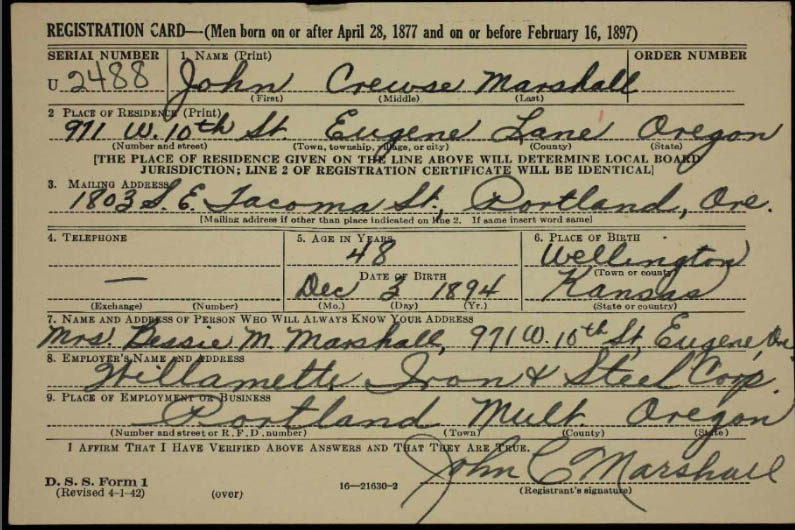 REGISTRATION CARD—(Men born on or after April 28, 1877 and on or before February 16, 1897)
SERIAL NUMBER 1. NAME (Print) ORDER NUMBER
U 2488 John Crewse Marshall
(First) (Middle) (Last)
2 PLACE OF RESIDENCE (Print)
971 W. 10th St. Eugene Lane Oregon
(Number and street) (Town, township, village, or city) (County) (State)
[THE PLACE OF RESIDENCE GIVEN ON THE LINE ABOVE WILL DETERMINE LOCAL BOARD
JURISDICTION; LINE 2 OF REGISTRATION CERTIFICATE WILL BE IDENTICAL]
3. MAILING ADDRESS
1803 S.E. Tacoma St., Portland, Ore.
[Mailing address if other than place indicated on line 2. If same insert word same]
4. TELEPHONE 5. AGE IN YEARS 6. PLACE OF BIRTH
48 Wellington
DATE OF BIRTH (Town or county)
— Dec 3 1894 Kansas
(Exchange) (Number) (Mo.) (Day) (Yr.) (State or country)
7. NAME AND ADDRESS OF PERSON WHO WILL ALWAYS KNOW YOUR ADDRESS
Mrs. Bessie M. Marshall, 971 W. 10th St, Eugene, Ore
8. EMPLOYER'S NAME AND ADDRESS
Willamette Iron & Steel Corp.
9. PLACE OF EMPLOYMENT OR BUSINESS
Portland Mult. Oregon
(Number and street or R. F. D. number) (Town) (County) (State)
I AFFIRM THAT I HAVE VERIFIED ABOVE ANSWERS AND THAT THEY ARE TRUE.
John C Marshall
D. S. S. Form 1
(Revised 4-1-42) (over) 16—21630-2 (Registrant's signature)